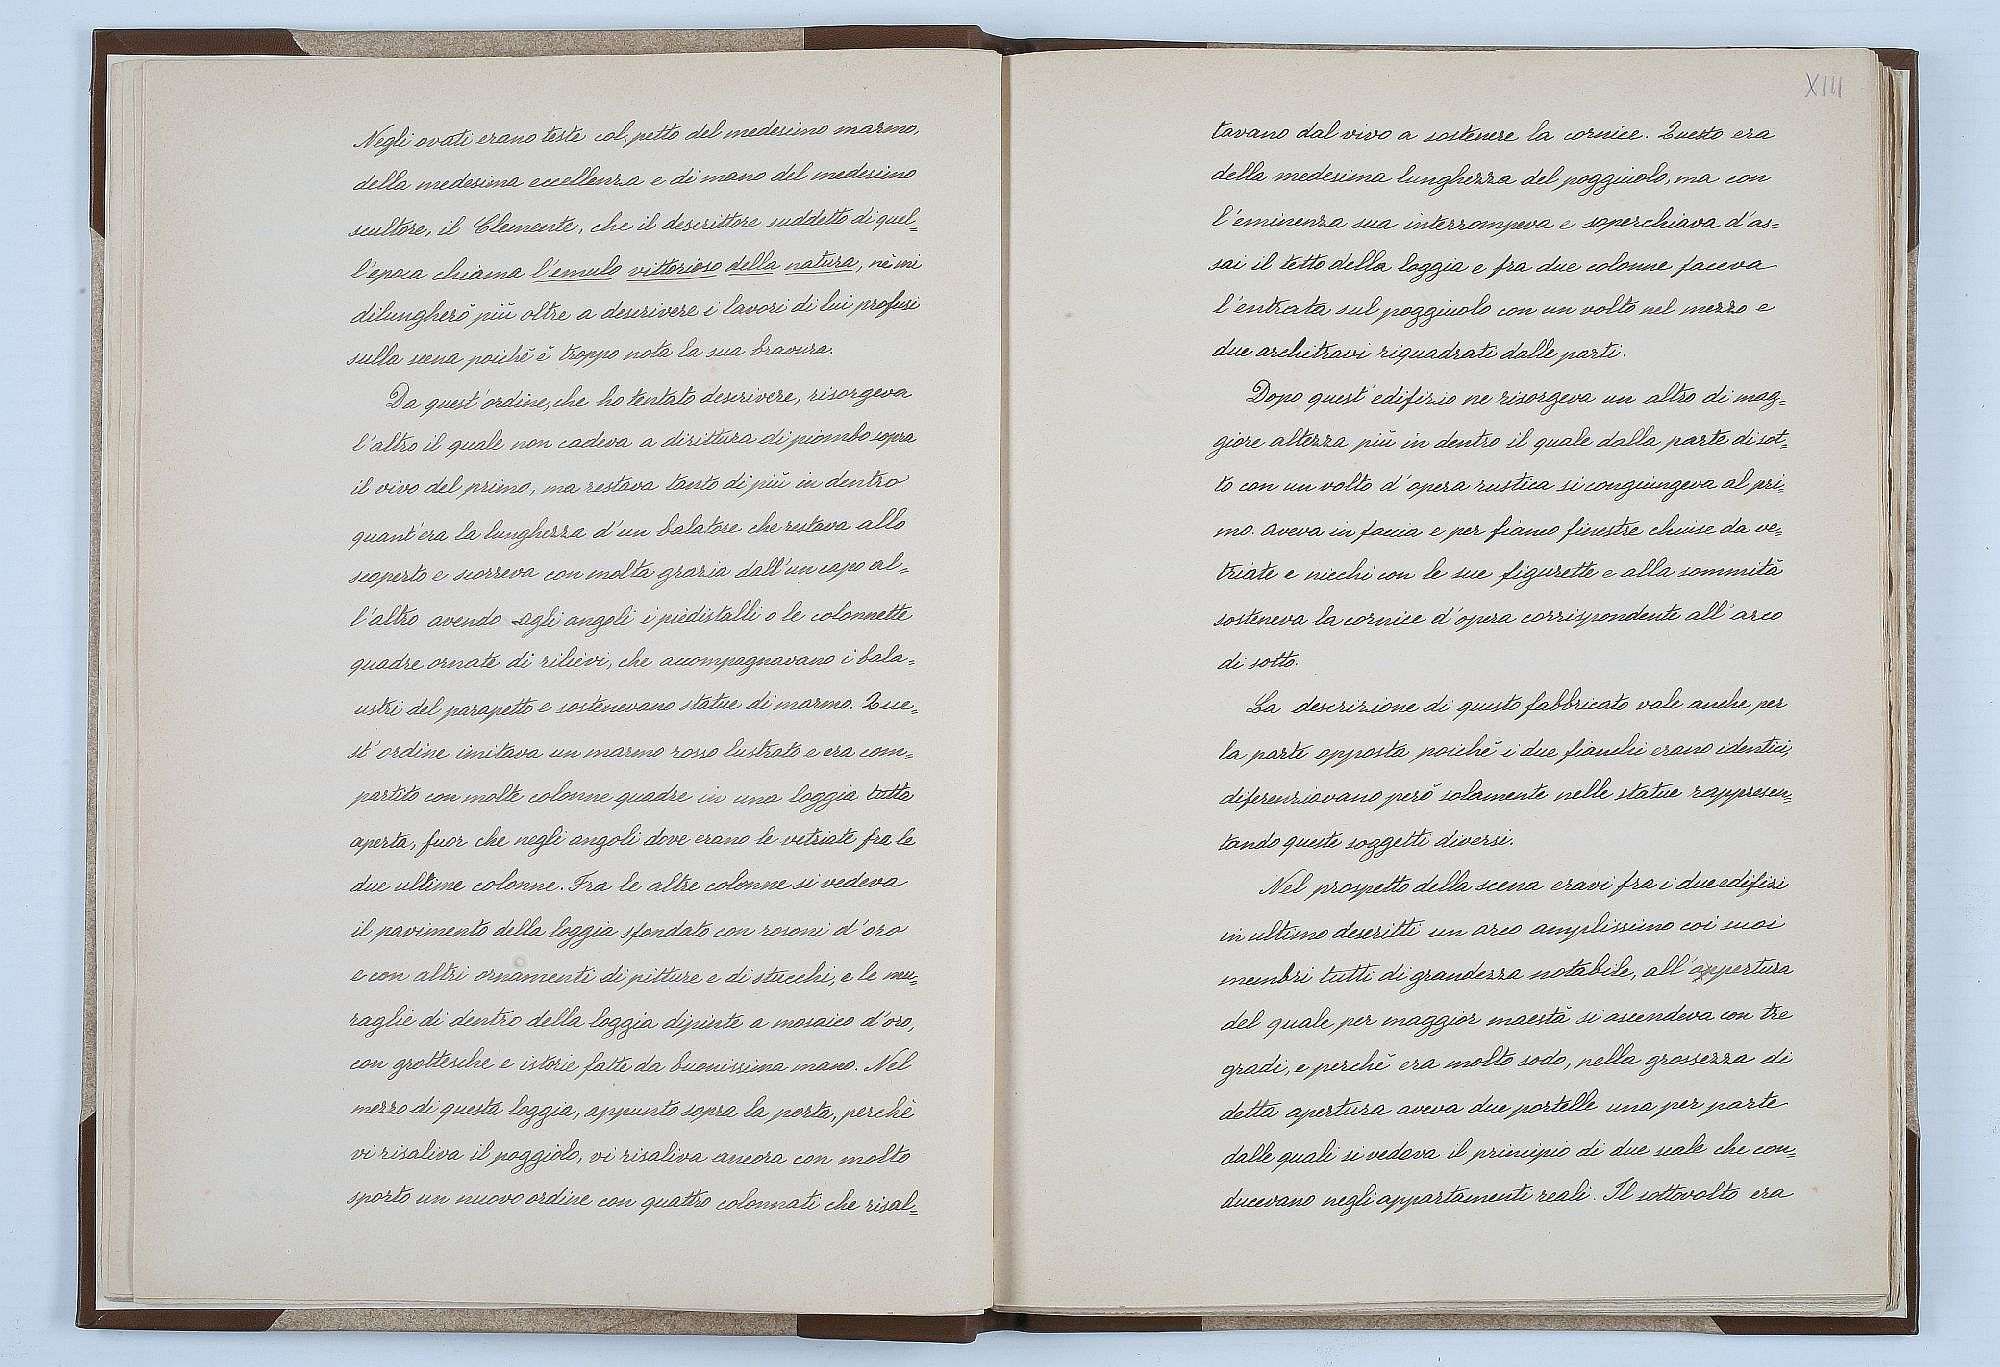 Negli ovati erano teste col petto del medesimo marmo,
della medesima eccellenza e di mano del medesimo
scultore, il Clemente, che il descrittore suddetto di quel-
l'epoca chiama l'emulo vittorioso della natura, nè mi
dilungherò più oltre a descrivere i lavori di lui profusi
sulla scena poichè è troppo nota la sua bravura.
Da quest'ordine, che ho tentato descrivere, risorgeva
l'altro il quale non cadeva a dirittura di piombo sopra
il vivo del primo, ma restava tanto di più in dentro
quant'era la lunghezza d'un balatore che restava allo
scoperto e scorreva con molta grazia dall'un capo al-
l'altro avendo agli angoli i piedistalli o le colonnette
quadre ornate di rilievi, che accompagnavano i bala-
ustri del parapetto e sostenevano statue di marmo. Que-
st'ordine imitava un marmo rosso lustrato e era com-
partito con molte colonne quadre in una loggia tutta
aperta, fuor che negli angoli dove erano le vetriate fra le
due ultime colonne. Fra le altre colonne si vedeva
il pavimento della loggia sfondato con rosoni d'oro
e con altri ornamenti di pitture e di stucchi, e le mu-
raglie di dentro della loggia dipinte a mosaico d'oro,
con grottesche e istorie fatte da buonissima mano. Nel
mezzo di questa loggia, appunto sopra la porta, perchè
vi risaliva il poggiolo, vi risaliva ancora con molto
sporto un nuovo ordine con quattro colonnati che risal-
XIII
tavano dal vivo a sostenere la cornice. Questo era
della medesima lunghezza del poggiuolo, ma con
l'eminenza sua interrompeva e soperchiava d'as-
sai il tetto della loggia e fra due colonne faceva
l'entrata sul poggiuolo con un volto nel mezzo e
due architravi riquadrati dalle parti.
Dopo quest'edifizio ne risorgeva un altro di mag-
giore altezza più in dentro il quale dalla parte di sot-
to con un volto d'opera rustica si congiungeva al pri-
mo. Aveva in faccia e per fianco finestre chiuse da ve-
triate e nicchi con le sue figurette e alla sommità
sosteneva la cornice d'opera corrispondente all'arco
di sotto.
La descrizione di questo fabbricato vale anche per
la parte opposta poichè i due fianchi erano identici,
diferenziavano però solamente nelle statue rappresen-
tando queste soggetti diversi.
Nel prospetto della scena eravi fra i due edifizi
in ultimo descritti un arco amplissimo coi suoi
membri tutti di grandezza notabile, all'appertura
del quale per maggior maestà si ascendeva con tre
gradi, e perchè era molto sodo, nella grossezza di
detta apertura aveva due portelle una per parte
dalle quali si vedeva il principio di due scale che con-
ducevano negli appartamenti reali. Il sottovolto era